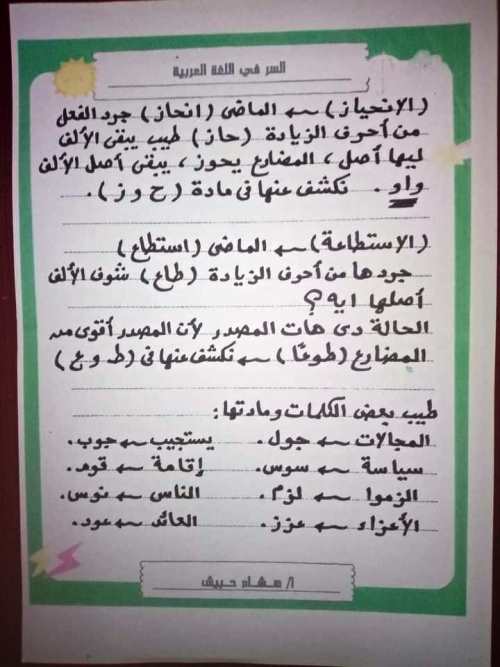 السر في اللغة العربية
(الإنحياز) ← الماضى (انحاز) جرد الفعل
من أحرف الزيادة (حاز) طيب يبقى الألف
ليها أصل، المضارع يحوز، يبقى أصل الألف
واو. نكشف عنها فى مادة (ح و ز).
(الاستطاعة) ← الماضى (استطاع)
جردها من أحرف الزيادة (طاع) شوف الألف
أصلها ايه؟
الحالة دى هات المصدر لأن المصدر أقوى من
المضارع (طوعًا) ← نكشف عنها فى (ط و ع)
طيب بعض الكلمات ومادتها:
المجالات ← جول. يستجيب ← جوب.
سياسة ← سوس. إقامة ← قوم.
الزموا ← لزم. الناس ← نوس.
الأعزاء ← عزز. العائد ← عود.
أ/ هشام حبيش